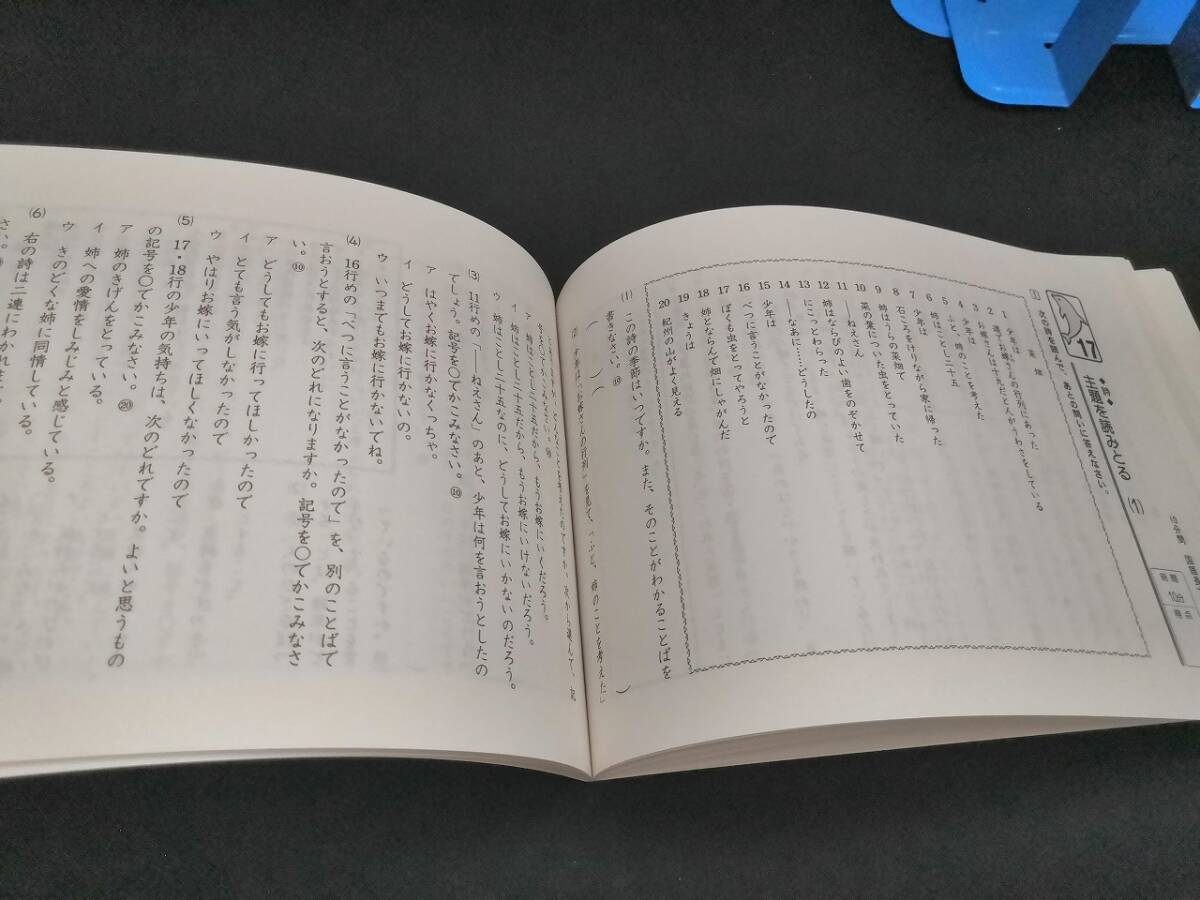 17
◆詩◆
主題を読みとる (1)
時間
10分
得点
1 次の詩を読んで、あとの問いに答えなさい。
菜畑
1 少年は、お嫁さんの行列にあった
2 通るお嫁さんは十九だと人がうわさをしている
3 お嫁さんは十九だと人がうわさをしている
4 少年は
5 ふと、姉のことを考えた
6 姉はことし二十五
7 少年は
8 石ころをけりながら家に帰った
9 姉はうらの菜畑で
10 菜の葉についた虫をとっていた
11 ――ねえさん
12 姉はならびのよい歯をのぞかせて
13 にこっとわらった
14 ――なあに……どうしたの
15 少年は
16 べつに言うことがなかったので
17 ぼくも虫をとってやろうと
18 姉とならんで畑にしゃがんだ
19 きょうは
20 紀州の山がよく見える
(1) この詩の季節はいつですか。また、そのことがわかることばを
書きなさい。⑩
( ) ( )
ア 姉はことし二十五だから、もうお嫁にいくだろう。
イ 姉はことし二十五だから、もうお嫁にいけないだろう。
ウ 姉はことし二十五なのに、どうしてお嫁にいかないのだろう。
(3) 11行めの「――ねえさん」のあと、少年は何を言おうとしたの
でしょう。記号を○でかこみなさい。⑩
ア はやくお嫁に行かなくっちゃ。
イ どうしてお嫁に行かないの。
ウ いつまでもお嫁に行かないでね。
(4) 16行めの「べつに言うことがなかったので」を、別のことばで
言おうとすると、次のどれになりますか。記号を○でかこみなさ
い。⑩
ア どうしてもお嫁に行ってほしかったので
イ とても言う気がしなかったので
ウ やはりお嫁にいってほしくなかったので
(5) 17・18行の少年の気持ちは、次のどれですか。よいと思うもの
の記号を○でかこみなさい。⑳
ア 姉のきげんをとっている。
イ 姉への愛情をしみじみと感じている。
ウ きのどくな姉に同情している。
(6) 右の詩は二連にわかれ